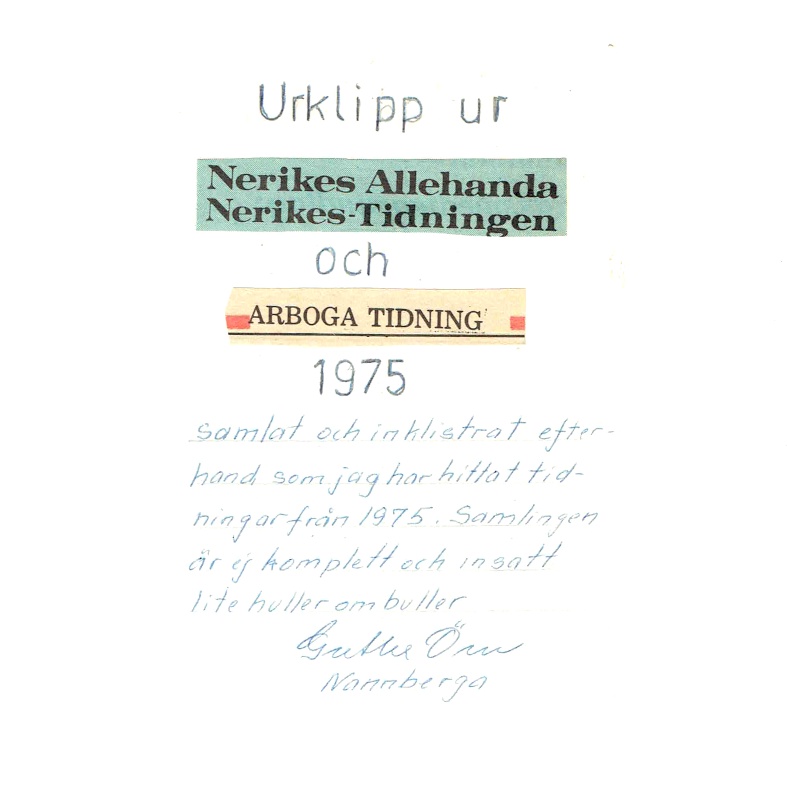 Urklipp ur
Nerikes Allehanda
Nerikes-Tidningen
och
ARBOGA TIDNING
1975
samlat och inklistrat efter-
hand som jag har hittat tid-
ningar från 1975. Samlingen
är ej komplett och insatt
lite huller om buller
Nannberga